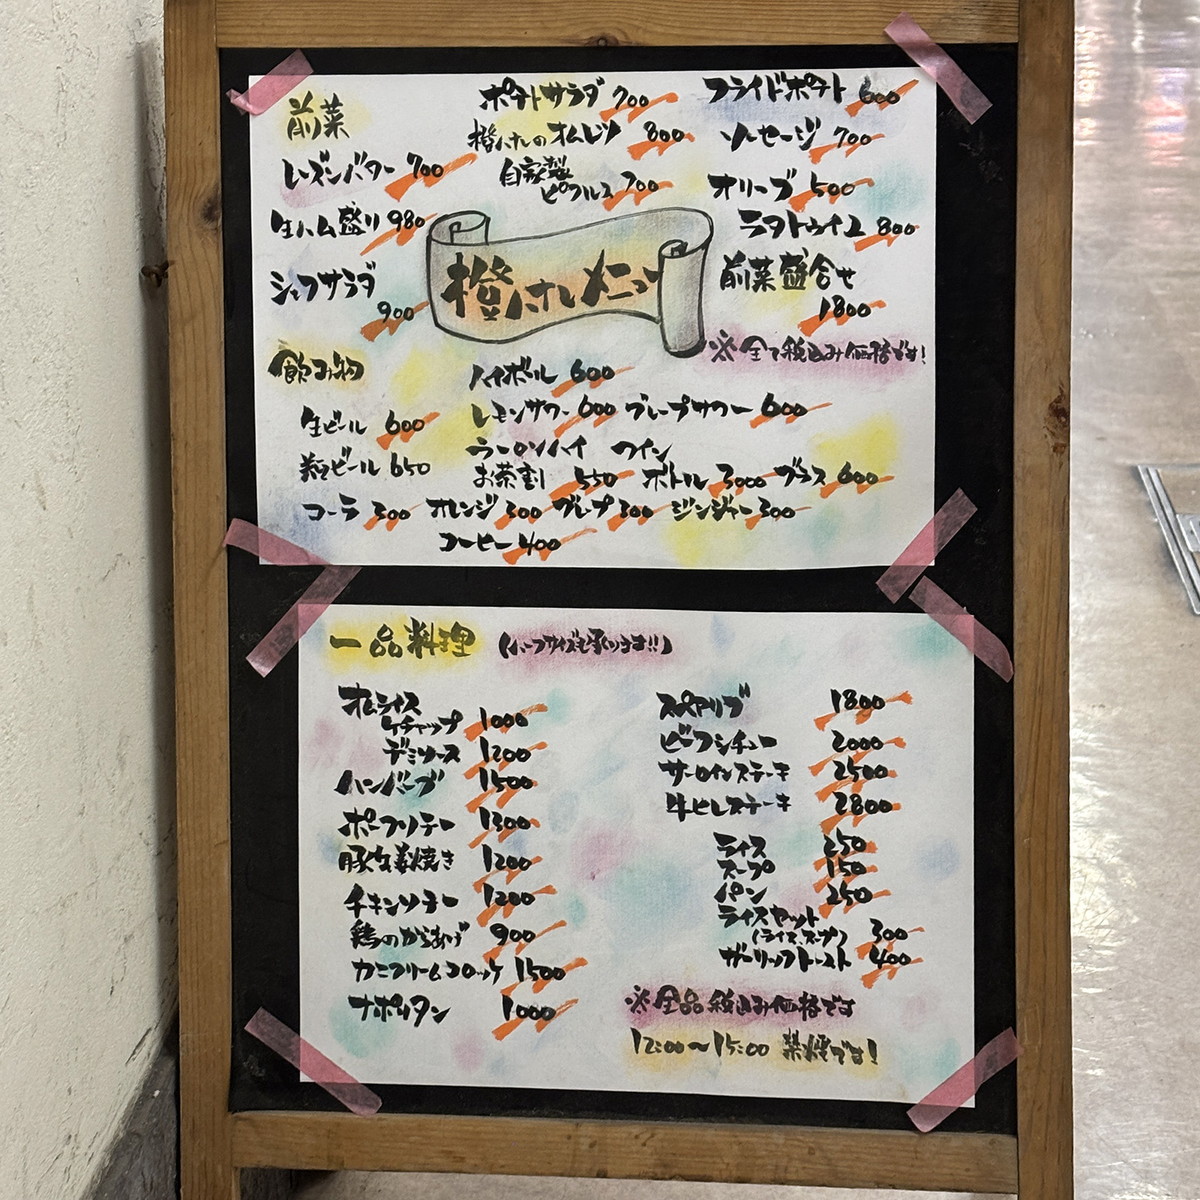 前菜
レーズンバター 700
生ハム盛り 980
シェフサラダ
900
ポテトサラダ 700
オムレツ 800
自家製
ピクルス 700
フライドポテト 600
ソーセージ 700
オリーブ 500
ラタトゥイユ 800
前菜盛合せ
1800
※全て税込み価格です!
メニュー
飲み物
生ビール 600
瓶ビール 650
ハイボール 600
レモンサワー 600 グレープサワー 600
ウーロンハイ ワイン
お茶割 550 ボトル 3000 グラス 600
コーラ 300 オレンジ 300 グレープ 300 ジンジャー 300
コーヒー 400
一品料理 (ハーフサイズも承ります!!)
オムライス
ケチャップ 1000
デミソース 1200
ハンバーグ 1500
ポークソテー 1300
豚生姜焼き 1200
チキンソテー 1200
鶏のからあげ 900
カニクリームコロッケ 1500
ナポリタン 1000
スペアリブ 1800
ビーフシチュー 2000
サーロインステーキ 2500
牛ヒレステーキ 2800
ライス 250
スープ 150
パン 250
ライスセット
(ライス、スープ) 300
ガーリックトースト 400
※全品税込み価格です
12:00~15:00 禁煙です!